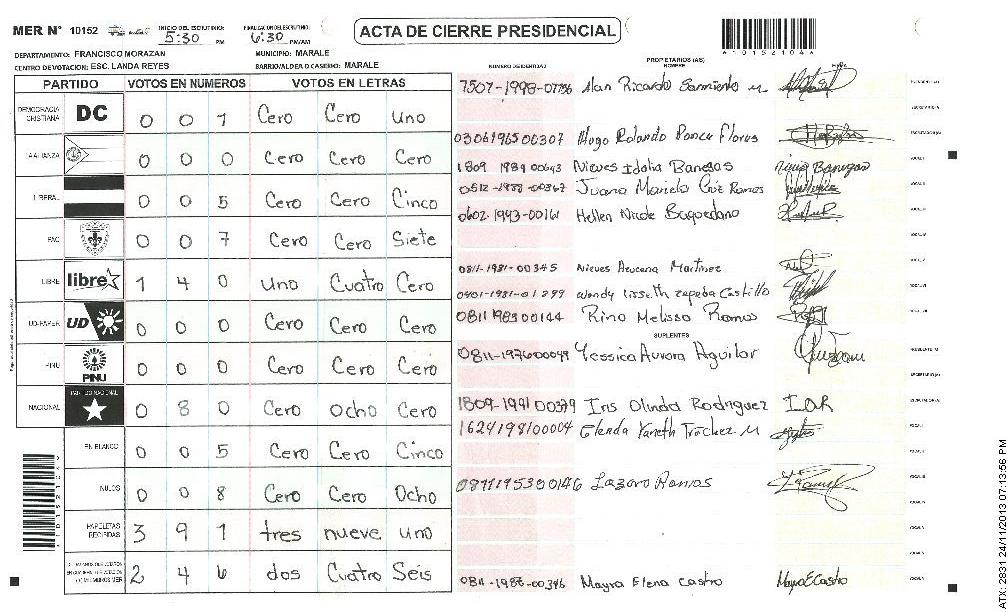 MER N° 10152
INICIO DEL ESCRUTINIO: 5:30 PM
FINALIZACION DEL ESCRUTINIO: 6:30 PM/AM
ACTA DE CIERRE PRESIDENCIAL
DEPARTAMENTO: FRANCISCO MORAZAN
MUNICIPIO: MARALE
CENTRO DE VOTACION: ESC. LANDA REYES
BARRIO/ALDEA O CASERIO: MARALE
PARTIDO VOTOS EN NUMEROS VOTOS EN LETRAS
DEMOCRACIA CRISTIANA DC 0 0 1 Cero Cero Uno
LA ALIANZA 0 0 0 Cero Cero Cero
LIBERAL 0 0 5 Cero Cero Cinco
PAC 0 0 7 Cero Cero Siete
LIBRE libre 1 4 0 Uno Cuatro Cero
UD-FAPER UD 0 0 0 Cero Cero Cero
PINU PINU 0 0 0 Cero Cero Cero
NACIONAL PARTIDO NACIONAL 0 8 0 Cero Ocho Cero
EN BLANCO 0 0 5 Cero Cero Cinco
NULOS 0 0 8 Cero Cero Ocho
PAPELETAS RECIBIDAS 3 9 1 tres nueve uno
2 4 6 dos Cuatro Seis
NUMERO DE IDENTIDAD
PROPIETARIOS (AS)
NOMBRE
Alan Ricardo Sarmiento M
0306196500307 Hugo Rolando Ponce Flores
1809 1989 00643 Nieves Idalia Banegas
0512-1988-00367 Juana Mariela Cruz Ramos
0602-1993-00161 Hellen Nicole Baquedano
0811-1981-00345 Nieves Azucena Martinez
0401-1981-01299 Wendy Lisseth Zepeda Castillo
0811198300144 Rina Melissa Ramos
SUPLENTES
0811-197600049 Yessica Aurora Aguilar
1809-199100379 Iris Olinda Rodriguez IOR
1624198100004 Glenda Yaneth Tróchez M
0811195300146 Lazaro Ramos
0811-1988-00346 Mayra Elena Castro Mayra E Castro
ATX: 2831 24/11/2013 07:13:56 PM